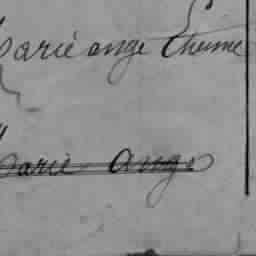 Marie ange Theme
Marie Ange